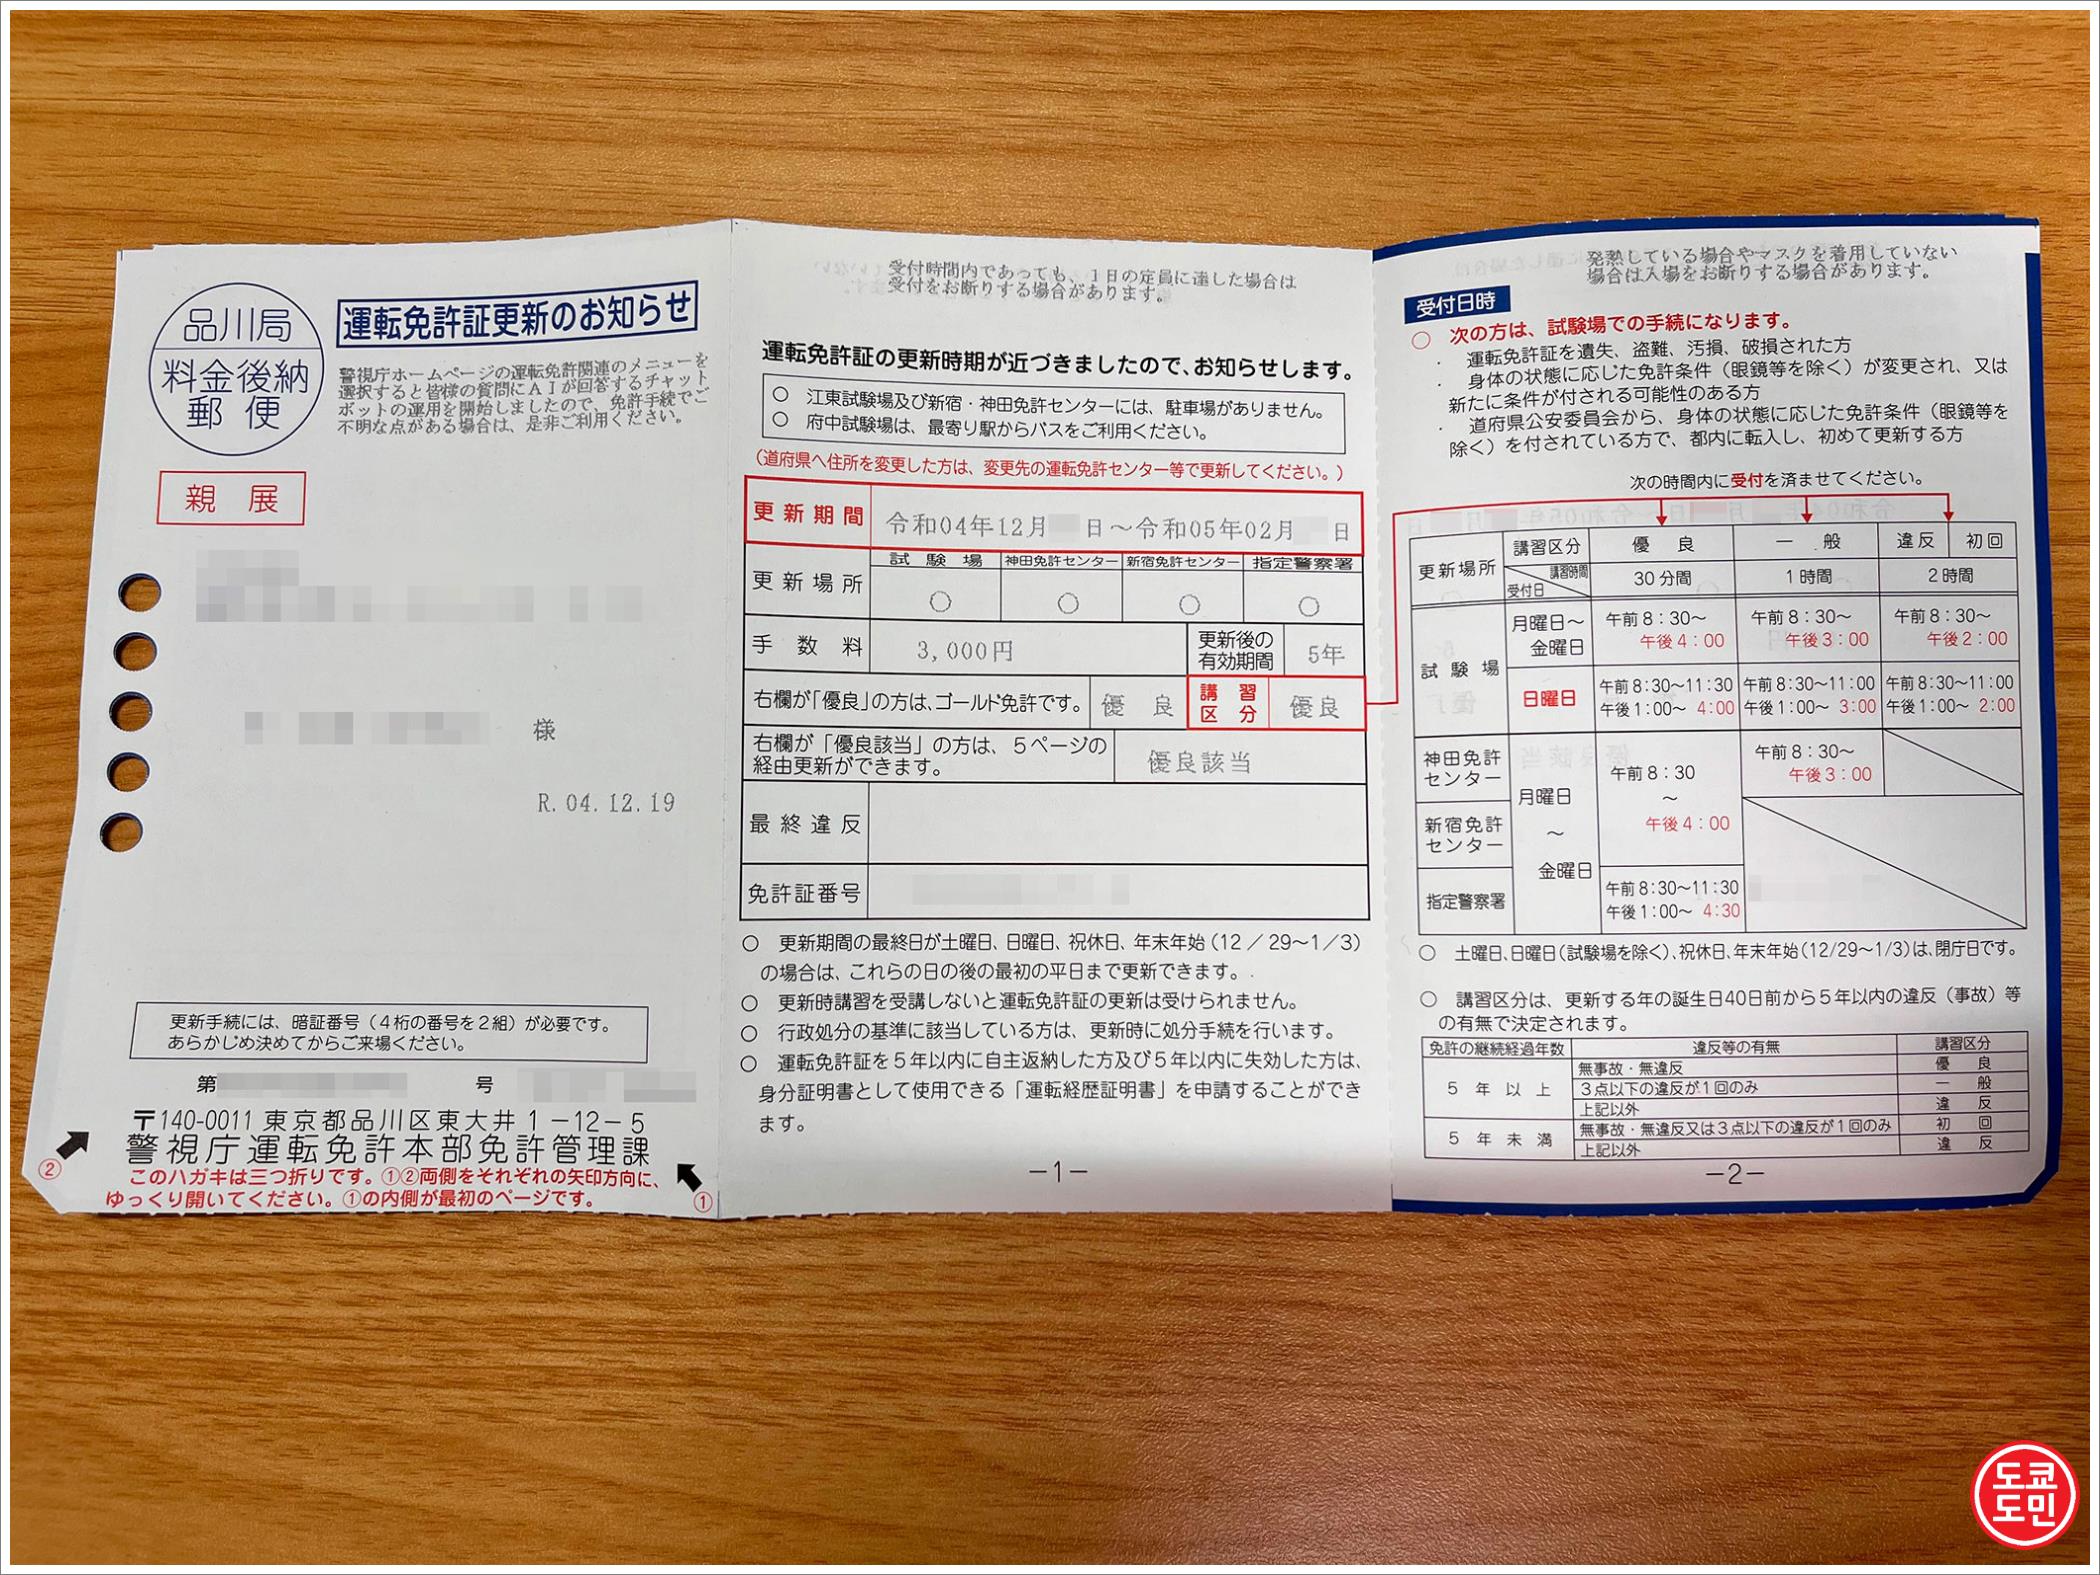 品川局
料金後納
郵便
運転免許証更新のお知らせ
警視庁ホームページの運転免許関連のメニューを
選択すると皆様の質問にAIが回答するチャット
ボットの運用を開始しましたので、免許手続でご
不明な点がある場合は、是非ご利用ください。
親展
様
R.04.12.19
更新手続には、暗証番号(4桁の番号を2組)が必要です。
あらかじめ決めてからご来場ください。
第 号
〒140-0011 東京都品川区東大井1-12-5
警視庁運転免許本部免許管理課
このハガキは三つ折りです。①②両側をそれぞれの矢印方向に、
ゆっくり開いてください。①の内側が最初のページです。
②
①
受付時間内であっても、1日の定員に達した場合は
受付をお断りする場合があります。
運転免許証の更新時期が近づきましたので、お知らせします。
○ 江東試験場及び新宿・神田免許センターには、駐車場がありません。
○ 府中試験場は、最寄り駅からバスをご利用ください。
(道府県へ住所を変更した方は、変更先の運転免許センター等で更新してください。)
更新期間 令和04年12月 日~令和05年02月 日
更新場所 試験場 神田免許センター 新宿免許センター 指定警察署
○ ○ ○ ○
手数料 3,000円 更新後の有効期間 5年
右欄が「優良」の方は、ゴールド免許です。 優良 講習区分 優良
右欄が「優良該当」の方は、5ページの
経由更新ができます。 優良該当
最終違反
免許証番号
○ 更新期間の最終日が土曜日、日曜日、祝休日、年末年始(12/29~1/3)
の場合は、これらの日の後の最初の平日まで更新できます。
○ 更新時講習を受講しないと運転免許証の更新は受けられません。
○ 行政処分の基準に該当している方は、更新時に処分手続を行います。
○ 運転免許証を5年以内に自主返納した方及び5年以内に失効した方は、
身分証明書として使用できる「運転経歴証明書」を申請することができ
ます。
-1-
発熱している場合やマスクを着用していない
場合は入場をお断りする場合があります。
受付日時
○ 次の方は、試験場での手続になります。
・ 運転免許証を遺失、盗難、汚損、破損された方
・ 身体の状態に応じた免許条件(眼鏡等を除く)が変更され、又は
新たに条件が付される可能性のある方
・ 道府県公安委員会から、身体の状態に応じた免許条件(眼鏡等を
除く)を付されている方で、都内に転入し、初めて更新する方
次の時間内に受付を済ませてください。
更新場所 講習区分 優良 一般 違反 初回
講習時間 受付日 30分間 1時間 2時間
試験場 月曜日~金曜日 午前8:30~午後4:00 午前8:30~午後3:00 午前8:30~午後2:00
日曜日 午前8:30~11:30 午前8:30~11:00 午前8:30~11:00
午後1:00~4:00 午後1:00~3:00 午後1:00~2:00
神田免許センター 月曜日~金曜日 午前8:30~午後4:00 午前8:30~午後3:00
新宿免許センター
指定警察署 午前8:30~11:30
午後1:00~4:30
○ 土曜日、日曜日(試験場を除く)、祝休日、年末年始(12/29~1/3)は、閉庁日です。
○ 講習区分は、更新する年の誕生日40日前から5年以内の違反(事故)等
の有無で決定されます。
免許の継続経過年数 違反等の有無 講習区分
5年以上 無事故・無違反 優良
3点以下の違反が1回のみ 一般
上記以外 違反
5年未満 無事故・無違反又は3点以下の違反が1回のみ 初回
上記以外 違反
-2-
도쿄
도민